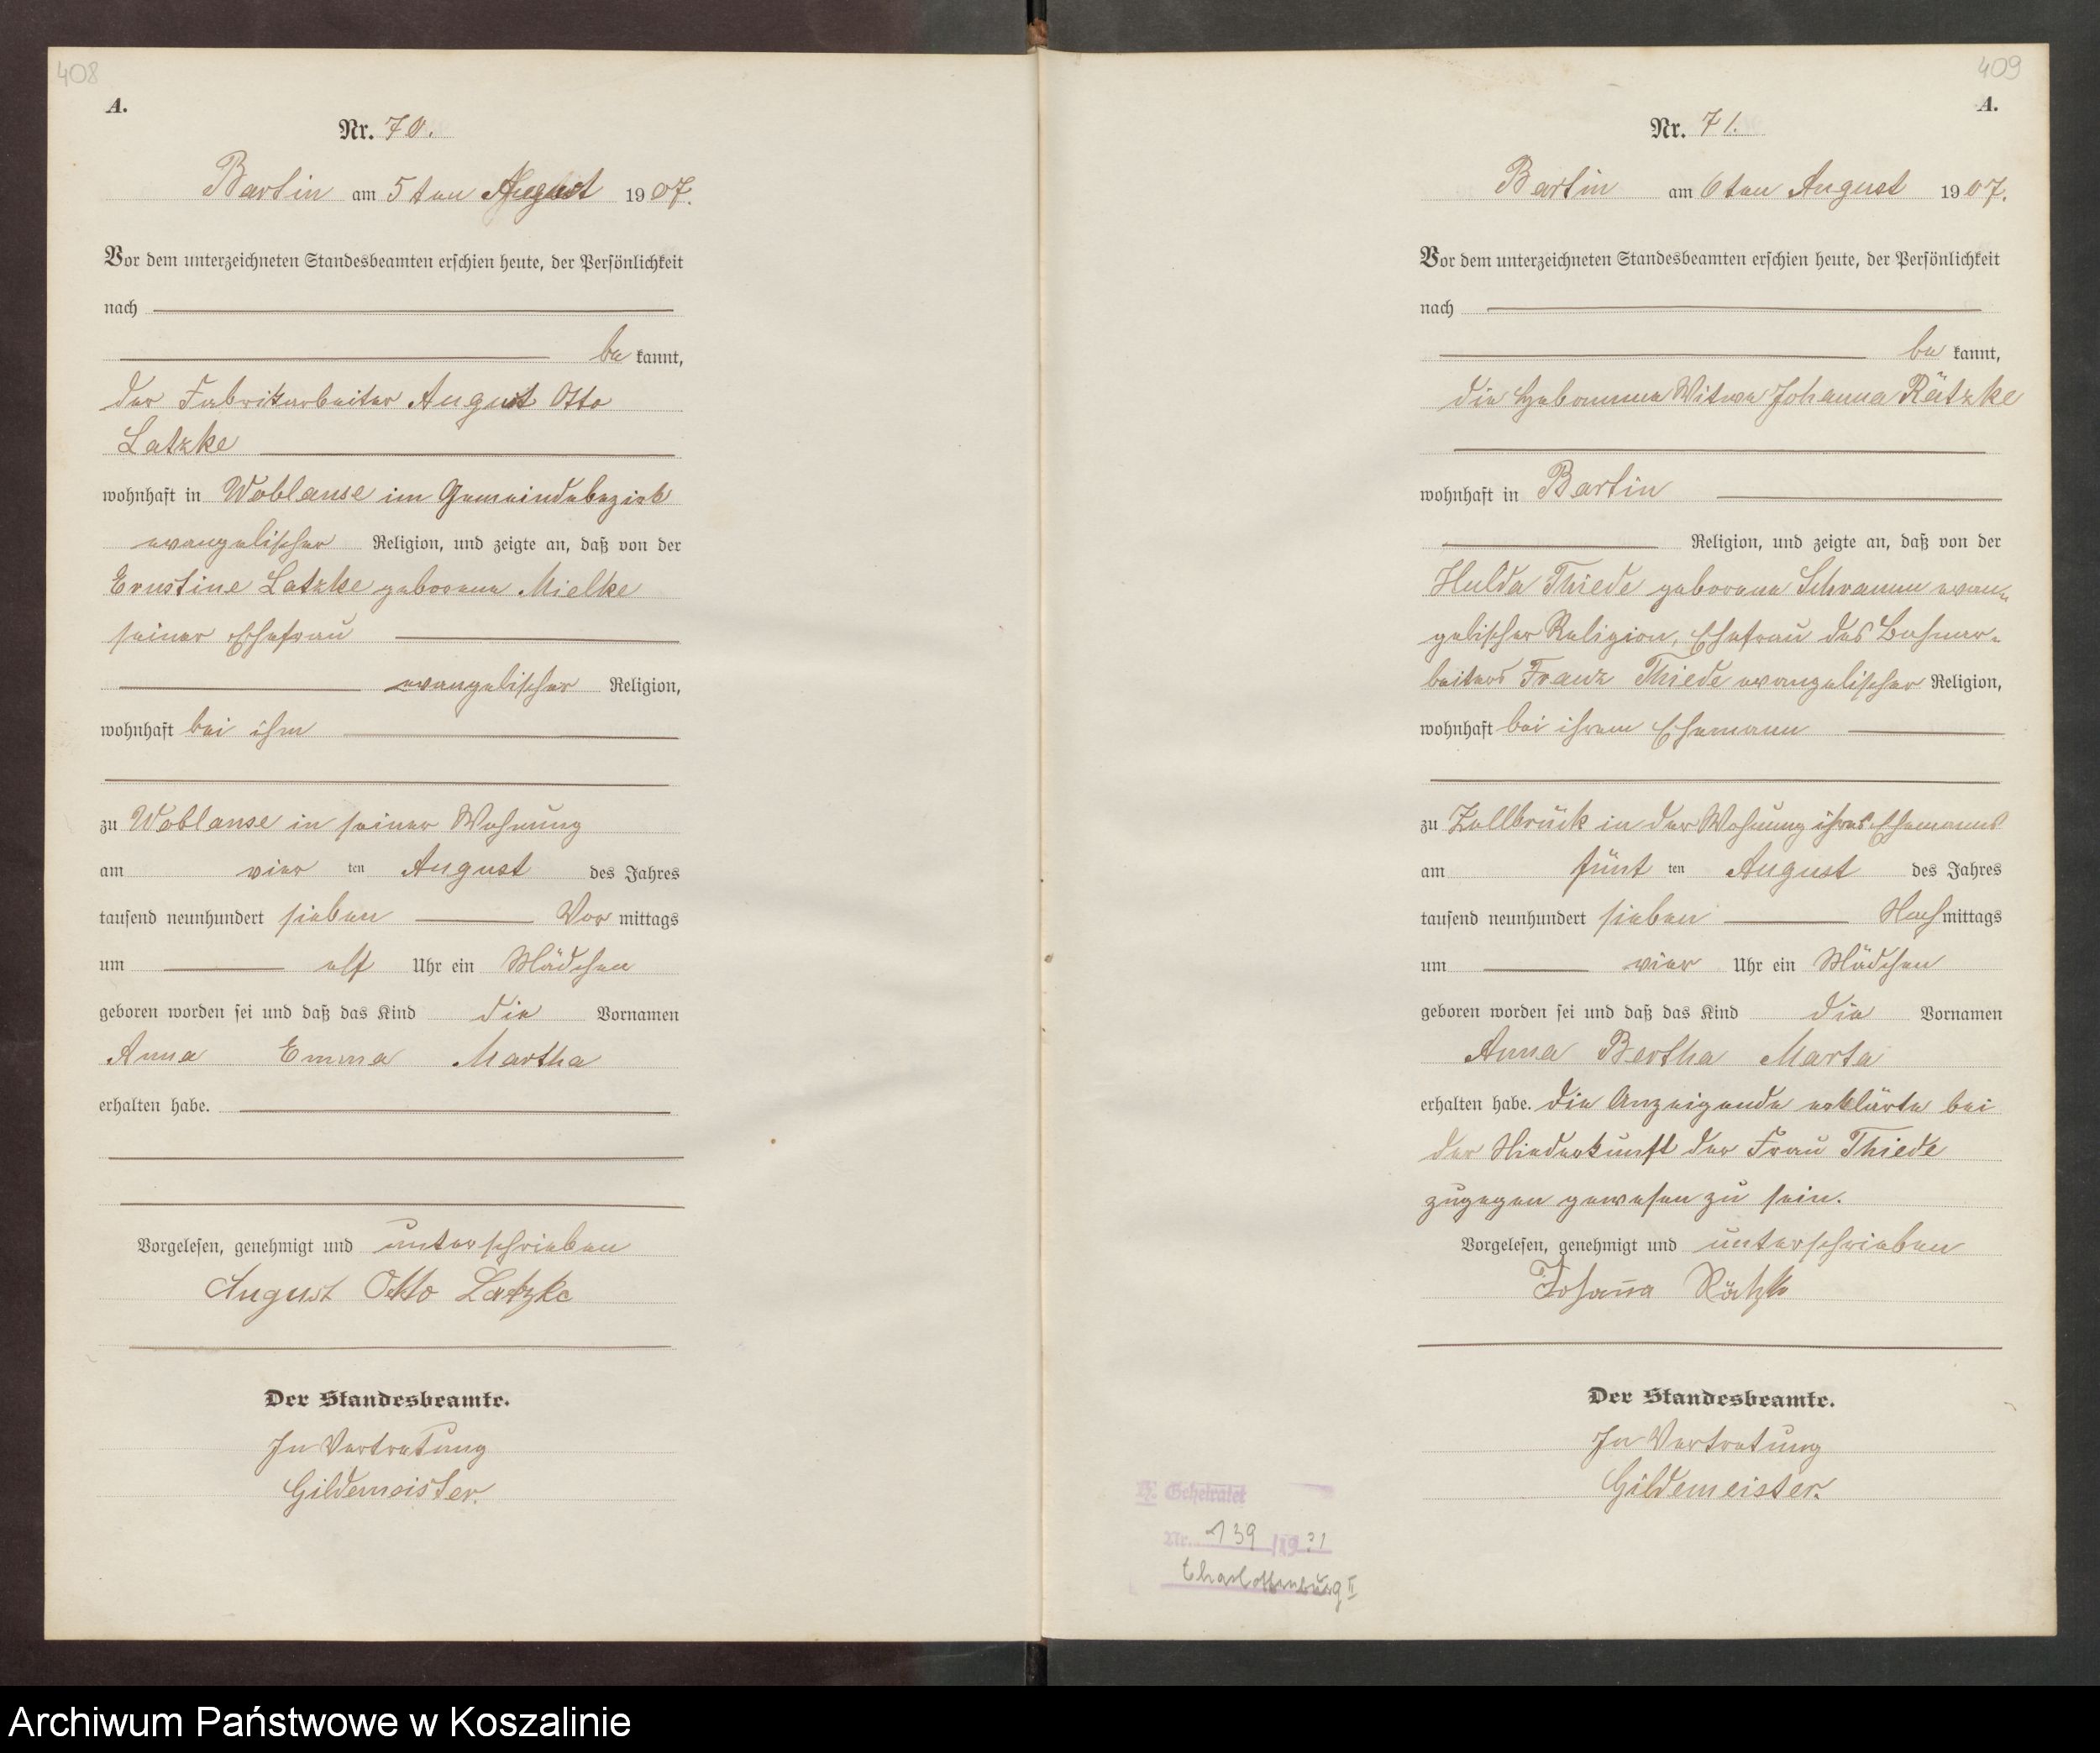 408
A.
Nr. 70.
Bartin am 5ten August 1907.
Vor dem unterzeichneten Standesbeamten erschien heute, der Persönlichkeit
nach
be kannt,
der Fabrikarbeiter August Otto
Latzke
wohnhaft in Woblanse im Gemeindebezirk
evangelischer Religion, und zeigte an, daß von der
Ernstine Latzke geborene Mielke
seiner Ehefrau
evangelischer Religion,
wohnhaft bei ihm
zu Woblanse in seiner Wohnung
am vier ten August des Jahres
tausend neunhundert sieben Vor mittags
um elf Uhr ein Mädchen
geboren worden sei und daß das Kind die Vornamen
Anna Emma Martha
erhalten habe.
Vorgelesen, genehmigt und unterschrieben
August Otto Latzke
Der Standesbeamte.
In Vertretung
Gildemeister.
409
A.
Nr. 71.
Bartin am 6ten August 1907.
Vor dem unterzeichneten Standesbeamten erschien heute, der Persönlichkeit
nach
be kannt,
die Hebamme Witwe Johanna Rätzke
wohnhaft in Bartin
Religion, und zeigte an, daß von der
Hulda Thiede geborene Schramm evan-
gelischer Religion, Ehefrau des Bahnar-
beiters Franz Thiede evangelischer Religion,
wohnhaft bei ihrem Ehemann
zu Zollbrück in der Wohnung ihres Ehemanns
am fünf ten August des Jahres
tausend neunhundert sieben Nach mittags
um vier Uhr ein Mädchen
geboren worden sei und daß das Kind die Vornamen
Anna Bertha Marta
erhalten habe. Die Anzeigende erklärte bei
der Niederkunft der Frau Thiede
zugegen gewesen zu sein.
Vorgelesen, genehmigt und unterschrieben
Johanna Rätzk
Der Standesbeamte.
In Vertretung
Gildemeister.
Geheiratet
Nr. 139 /19 31
Charlottenburg II
Archiwum Państwowe w Koszalinie